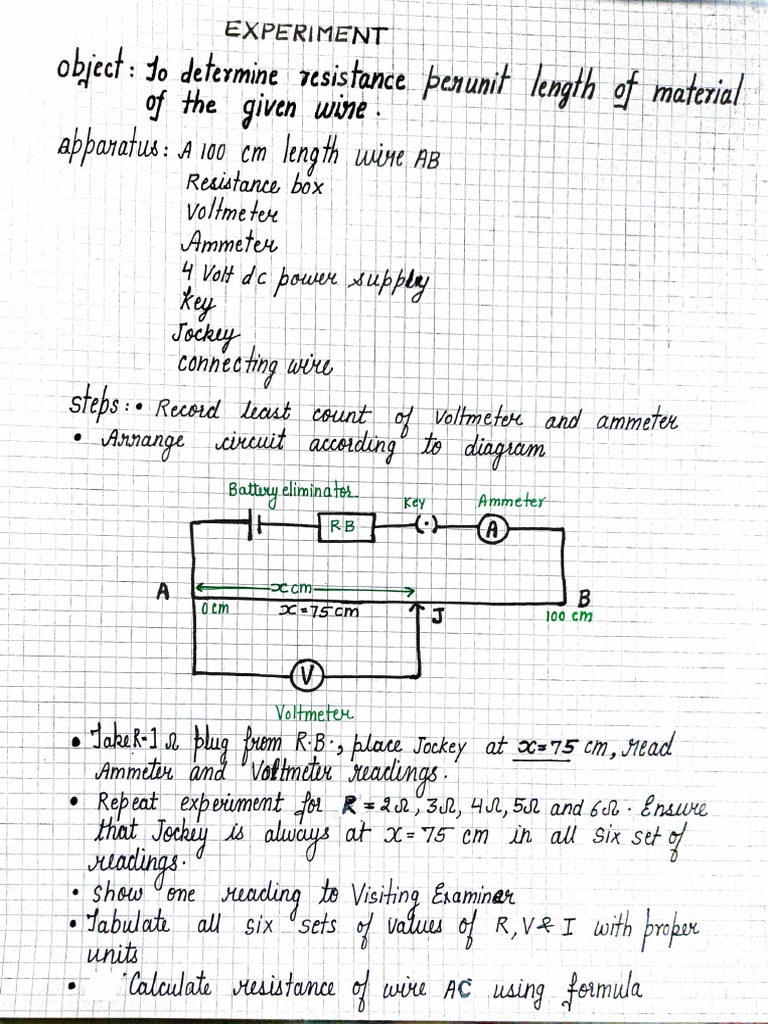 EXPERIMENT
object: To determine resistance per unit length of material
of the given wire.
apparatus: A 100 cm length wire AB
Resistance box
Voltmeter
Ammeter
4 Volt dc power supply
key
Jockey
connecting wire
steps: • Record least count of voltmeter and ammeter
• Arrange circuit according to diagram
Battery eliminator Key Ammeter
R B (·) A
A x cm B
0 cm x = 75 cm J 100 cm
V
Voltmeter
• Take R-1 Ω plug from R.B., place Jockey at x=75 cm, read
Ammeter and Voltmeter readings.
• Repeat experiment for R = 2Ω, 3Ω, 4Ω, 5Ω and 6Ω. Ensure
that Jockey is always at x = 75 cm in all six set of
readings.
• show one reading to Visiting Examiner
• Tabulate all six sets of values of R, V & I with proper
units
• Calculate resistance of wire AC using formula